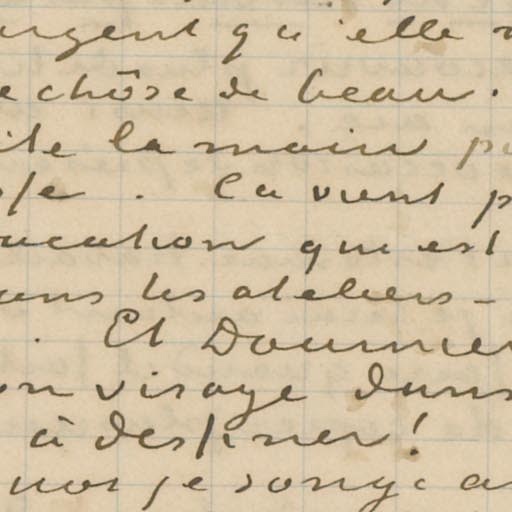 urgent qu'elle
e chôse de beau.
ite la main
. Ca vient p
ucation qui est
ans les ateliers -
. Et Doumer
on visage dans
à dessiner!
nos je songe a